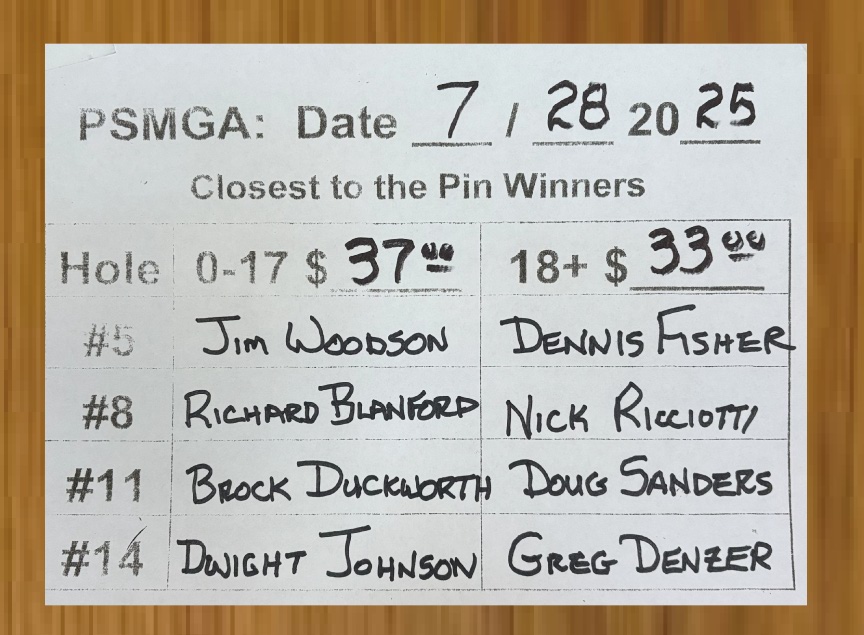 PSMGA: Date 7 / 28 20 25
Closest to the Pin Winners
Hole 0-17 $ 37.00 18+ $ 33.00
#5 Jim Woodson Dennis Fisher
#8 Richard Blanford Nick Ricciotti
#11 Brock Duckworth Doug Sanders
#14 Dwight Johnson Greg Denzer